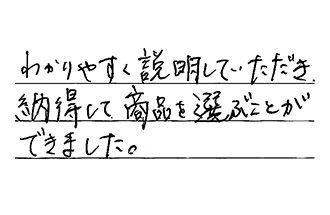 わかりやすく説明していただき、
納得して商品を選ぶことが
できました。